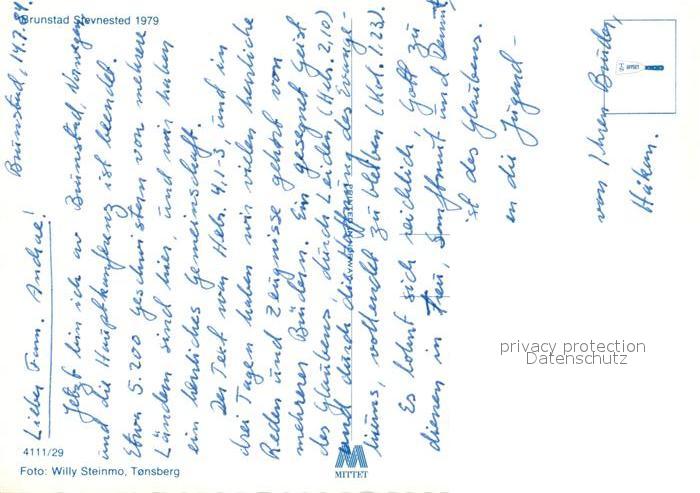 Brunstad Stevnested 1979
Brunstad, 14.7.84.
Lieber Fam. Andrae!
Jetzt bin ich av Brunstad, Norwegen
und die Hauptkonferanz ist beendet.
Etwa 5.200 Geschwistern von mehrere
Ländern sind hier, und wir haben
ein herrliches Gemeinschaft.
Der Text war Hebr. 4,1-3, und in
drei Tagen haben wir vielen herrliche
Reden und Zeugnisse gehört von
mehreren Brüdern. Ein gesegnet Geist
des Glaubens, durch Leiden (Heb. 2,10)
und durch die Hoffnung des Evange-
liums, vollendet zu bleiben (Kol. 1.23).
Es lohnt sich reichlich, Gott zu
dienen in Treu, Sanftmut und Demut
ist des Glaubens.
in die Jugend -
von Ihren Bruder,
Håkon.
4111/29
Foto: Willy Steinmo, Tønsberg
MITTET
MITTET
privacy protection
Datenschutz